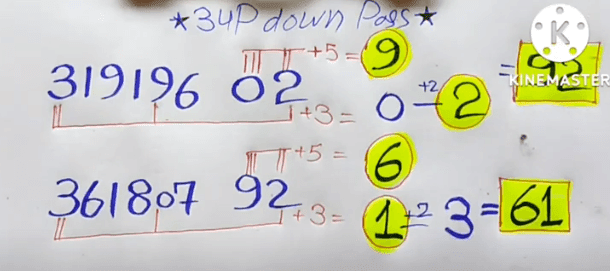 ★3UP down Pass★
+5= 9
319196 02 +3= 0 +2 2 = 92
KINEMASTER
+5= 6
361807 92 +3= 1 +2 3 = 61